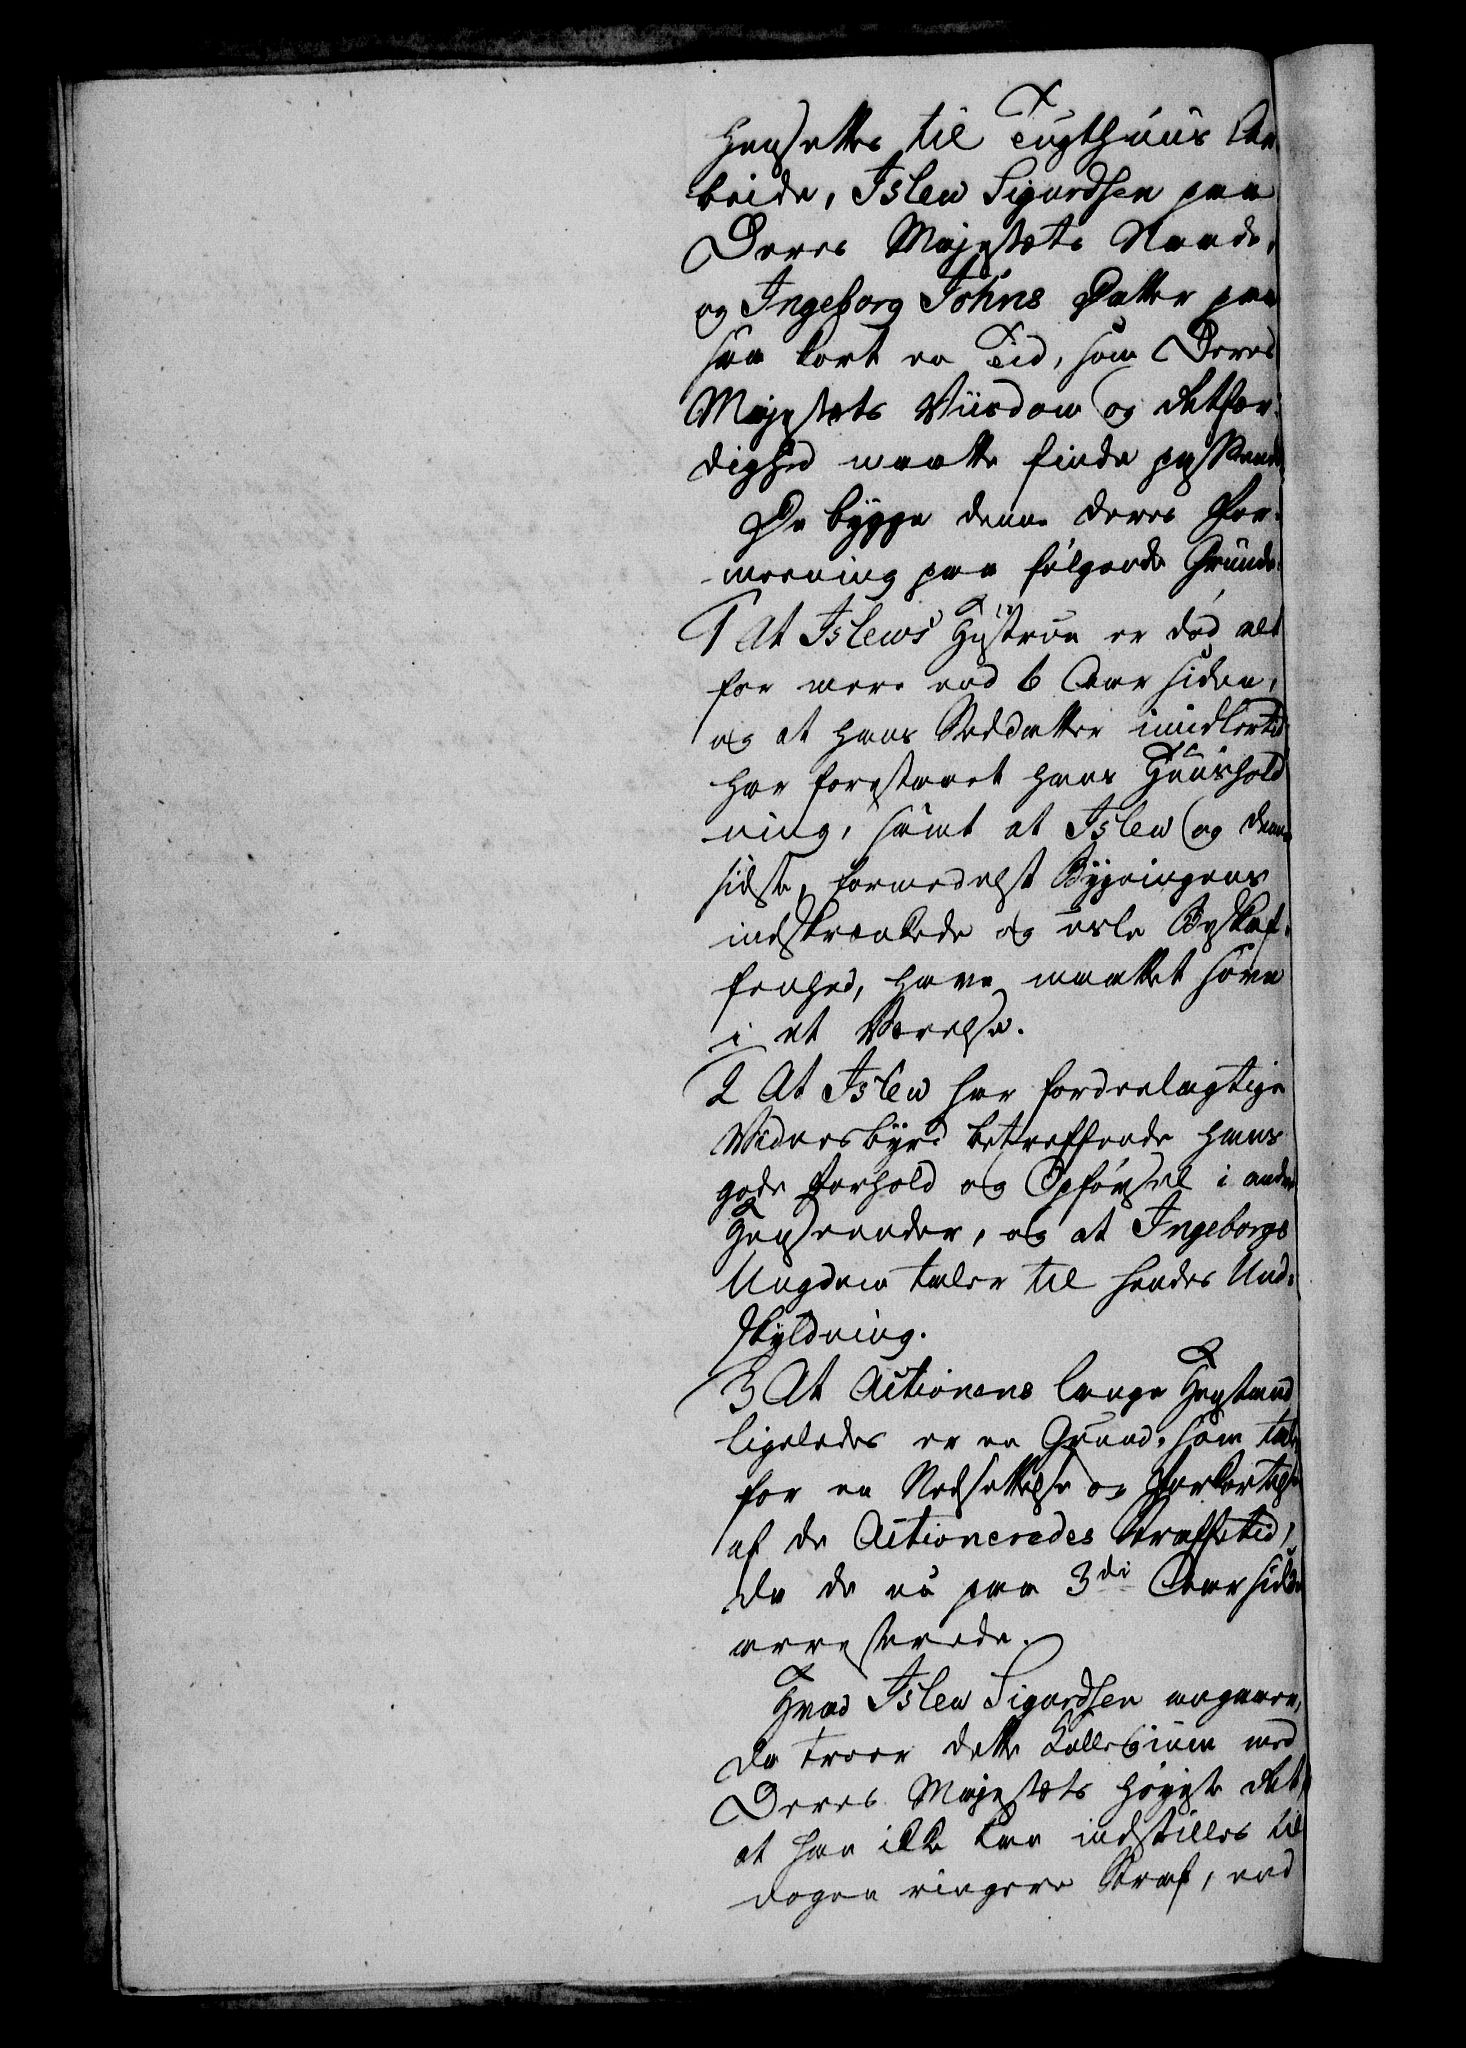 hensættes til Tugthuus Ar
beide, Islew Sigurdsen paa
Deres Majestæts Naade,
og Ingeborg Johns Datter paa
saa kort en Tid, som Deres
Majestæts Viisdom og Retfær¬
dighed maatte finde passende
De bygge denne deres For¬
meening paa følgende Grunde:
1 At Islews Hustrue er død alt
for mere end 6 Aar siden,
og at hans Steddatter imidlertid
har forestaaet hans Huushold
ning, samt at Islew og denne
sidste, formedelst Bygningens
indskrænkede og usle Beskaf¬
fenhed, have maattet sove
i et Værelse.
2 At Islew har fordeelagtige
Vidnesbyrd betreffende hans
gode Forhold og Opførsel i andre
Henseender, og at Ingeborgs
Ungdom taler til hendes Und¬
skyldning.
3 At Actionens lange Henstand
ligeledes er en Grund, som taler
for en Nedsættelse og Forkortelse
af de Actioneredes Straffetid,
da de nu paa 3die Aar sidde
arresterede.
Hvad Islew Sigurdsen angaaer,
da troer dette Collegium med
Deres Majestæts høyeste Ret,
at han ikke kan indstilles til
nogen ringere Straf, end